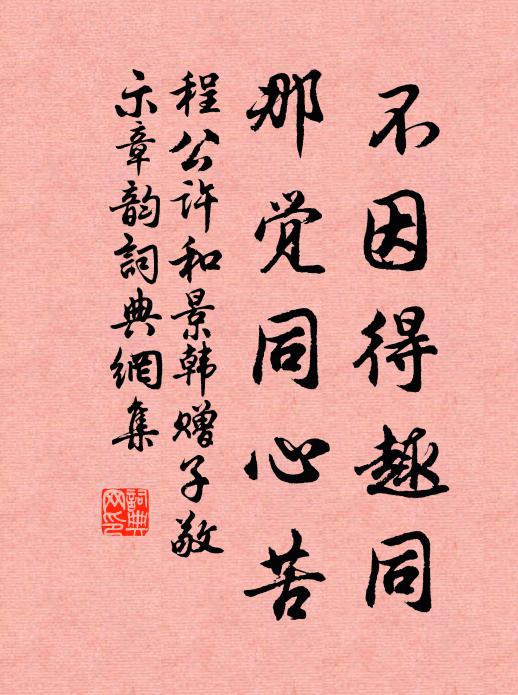 不因得趣同
那觉同心苦
程公许和景韩赠子敬
示章韵詞典網集
詞典网印